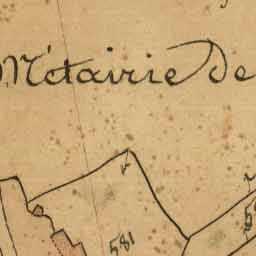 Métairie De
581